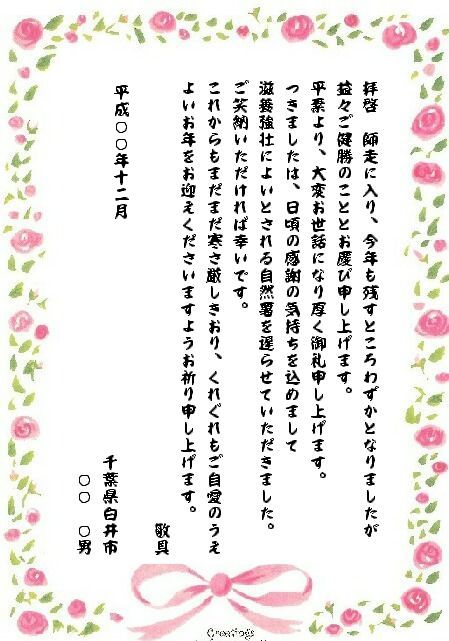 拝啓　師走に入り、今年も残すところわずかとなりましたが
益々ご健勝のこととお慶び申し上げます。
平素より、大変お世話になり厚く御礼申し上げます。
つきましたは、日頃の感謝の気持ちを込めまして
滋養強壮によいとされる自然薯を遅らせていただきました。
ご笑納いただければ幸いです。
これからもまだまだ寒さ厳しきおり、くれぐれもご自愛のうえ
よいお年をお迎えくださいますようお祈り申し上げます。
敬具
平成〇〇年十二月
千葉県白井市
〇〇　〇男
Greetings